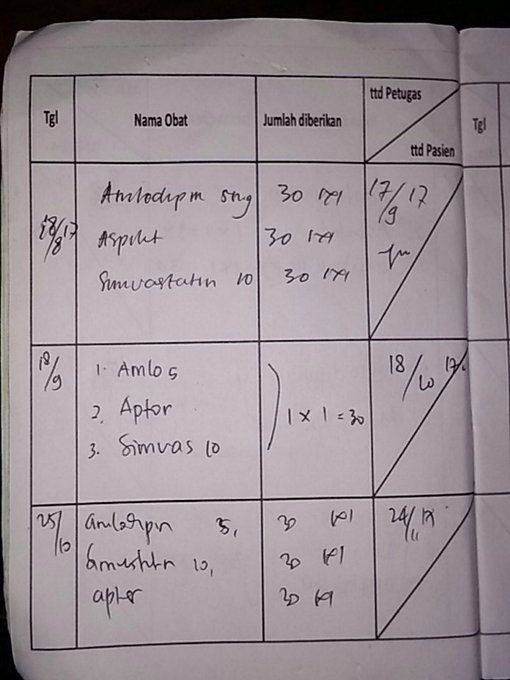 Tgl Nama Obat Jumlah diberikan ttd Petugas
ttd Pasien
Tgl
18/8 17 Amlodipin 5mg 30 1x1 17/9 17
Aspilet 30 1x1
Simvastatin 10 30 1x1
18/9 1. Amlo 5 18/10 17
2. Aptor 1 x 1 = 30
3. Simvas 10
25/10 amlodipin 5, 30 1x1 24/11 17
Simvastatin 10, 30 1x1
aptor 30 1x1